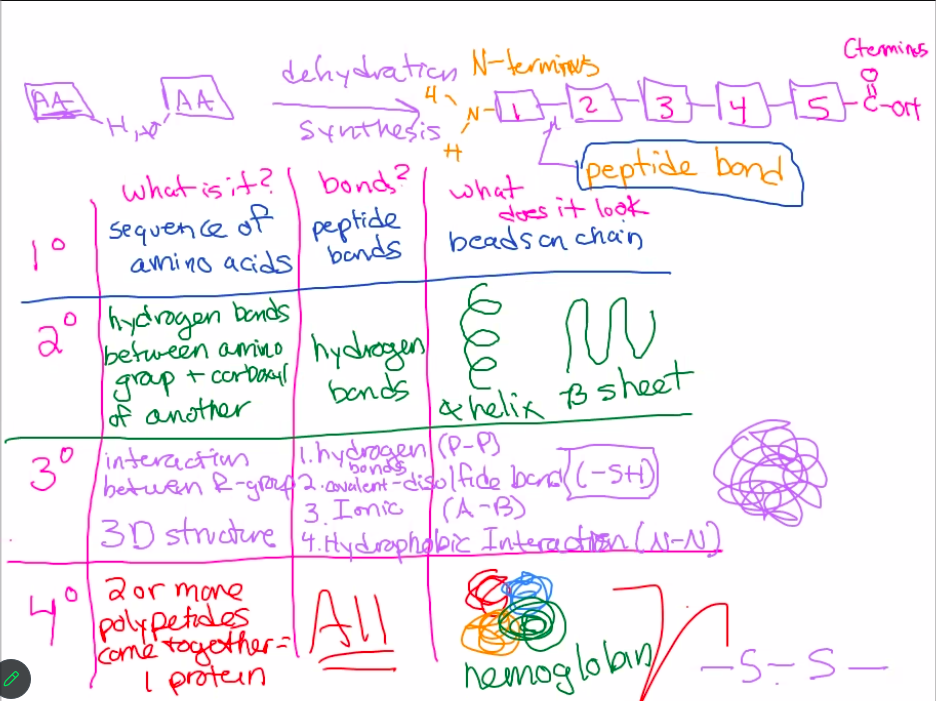 Cterminus
dehydration
N-terminus
O
AA
AA
H
N
1
2
3
4
5
C-OH
H
synthesis
H
peptide bond
what is it?
bonds?
what
does it look
1°
sequence of
amino acids
peptide
bonds
beads on chain
2°
hydrogen bonds
between amino
group + carboxyl
of another
hydrogen
bonds
α helix
β sheet
3°
interaction
between R-group
3D structure
1. hydrogen (P-P)
bonds
2. covalent-disolfide bond (-SH)
3. Ionic (A-B)
4. Hydrophobic Interaction (N-N)
4°
2 or more
polypetides
come together =
1 protein
All
hemoglobin
-S-S-